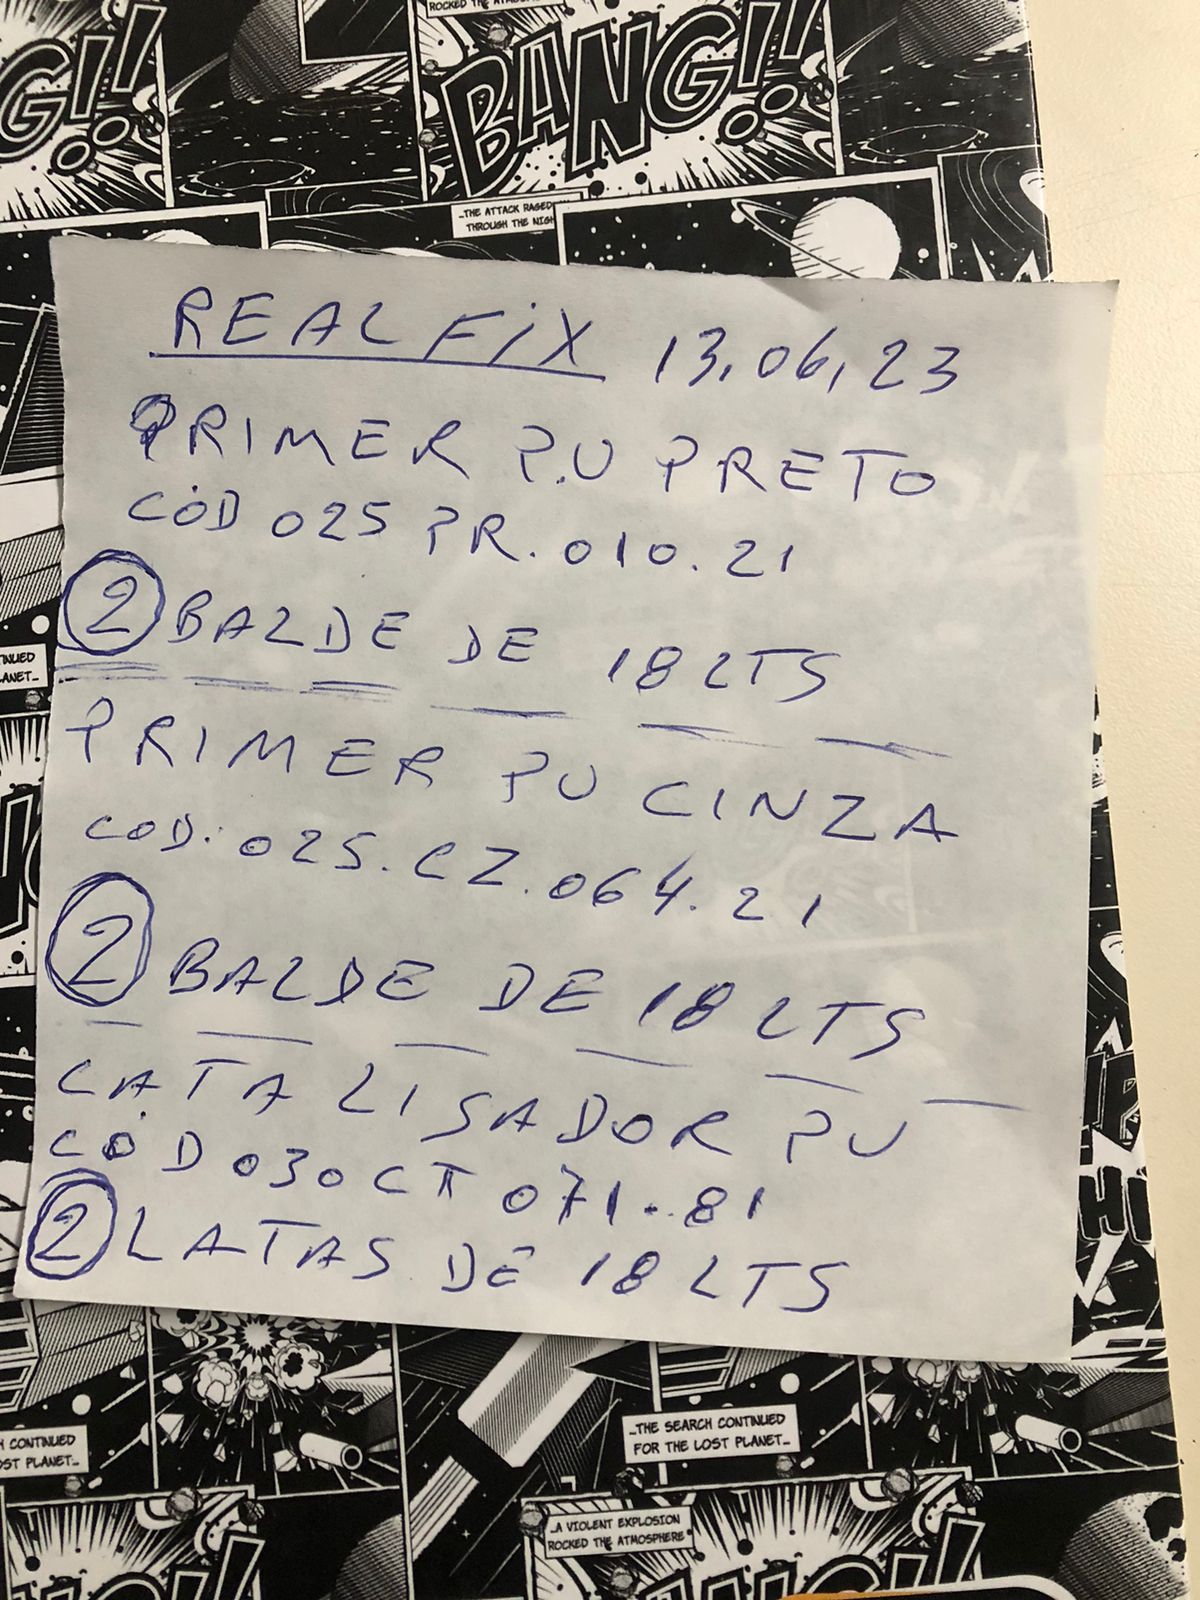 ROCKED THE ATMOSPHERE
BANG!!
G!!
...THE ATTACK RAGED
THROUGH THE NIGH
REALFIX 13,06,23
PRIMER P.U PRETO
CÓD 025 PR.010.21
2 BALDE DE 18 LTS
TINUED
LANET...
PRIMER PU CINZA
COD. 025.CZ.064.21
2 BALDE DE 18 LTS
CATALISADOR PU
CÓD 030 CT 071.81
2 LATAS DE 18 LTS
H CONTINUED
OST PLANET...
...THE SEARCH CONTINUED
FOR THE LOST PLANET...
...A VIOLENT EXPLOSION
ROCKED THE ATMOSPHERE